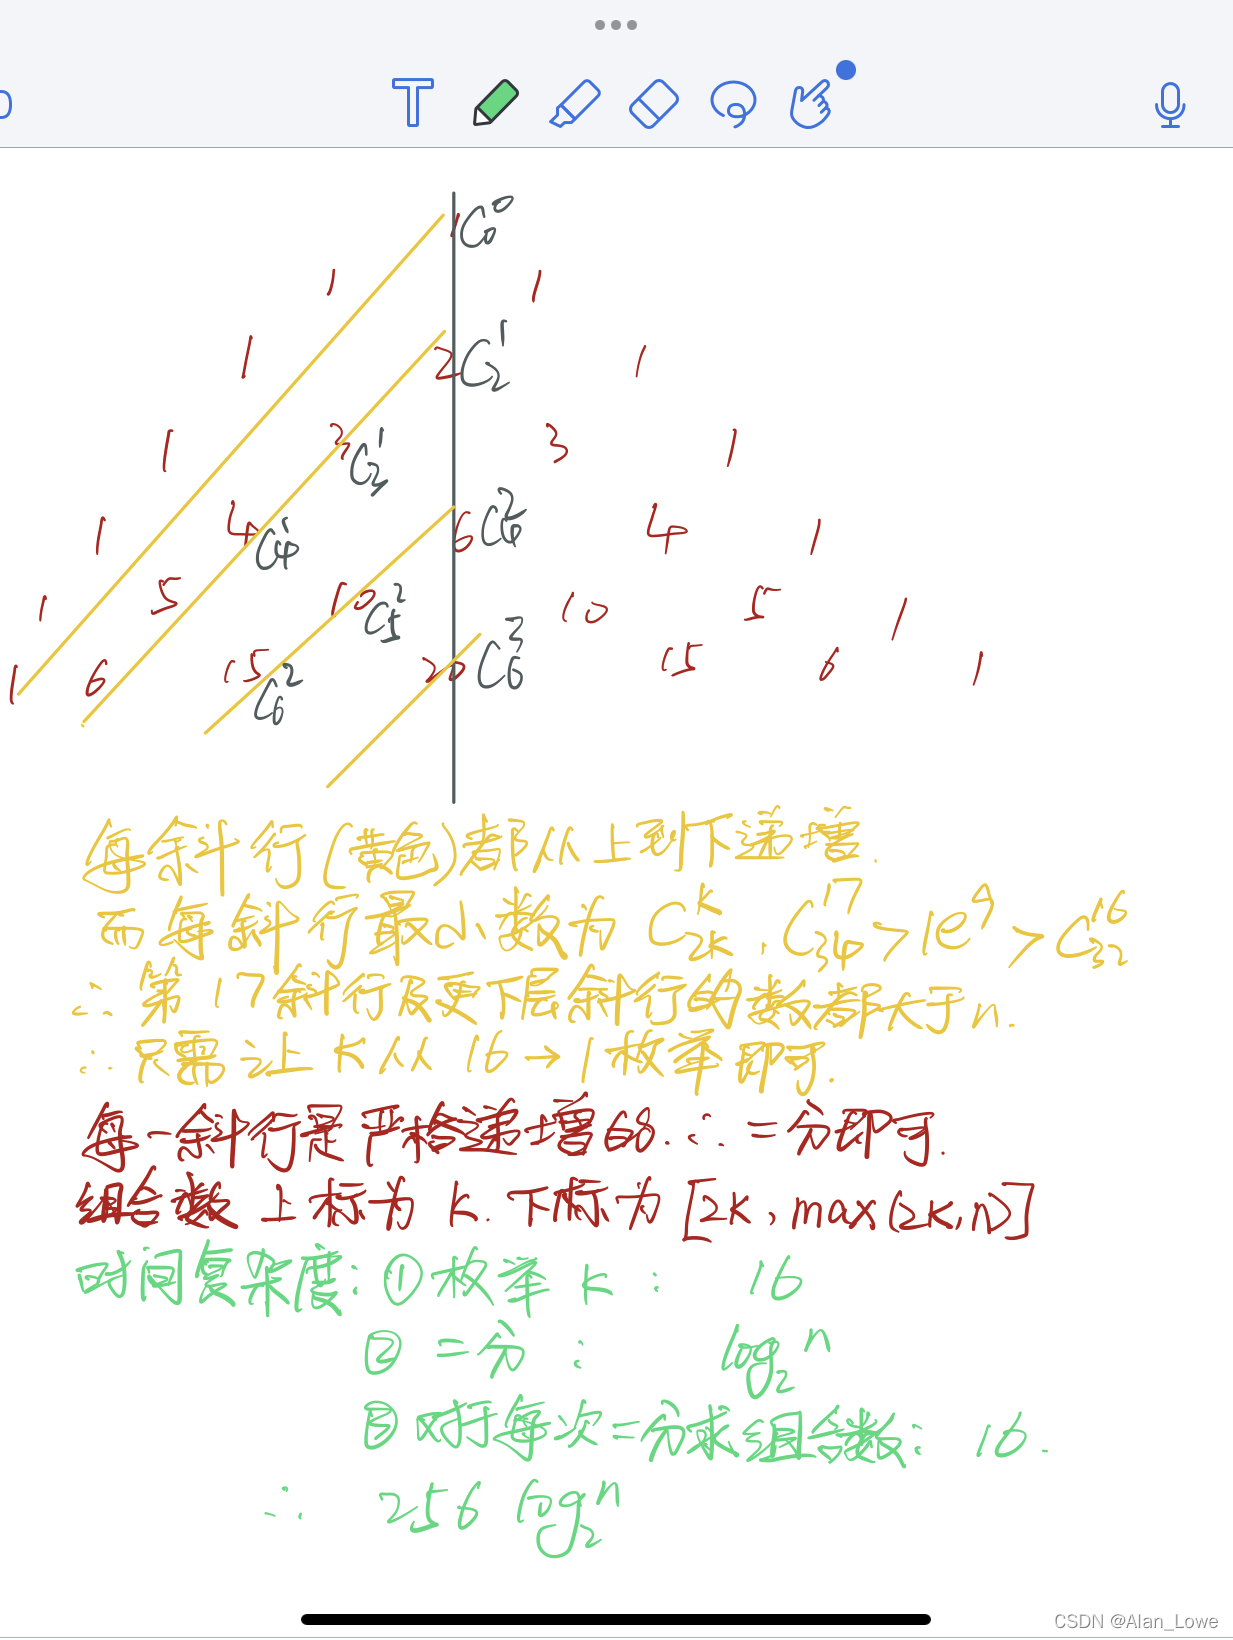 T
1 C₀⁰
1 1
1 2 C₂¹ 1
1 3 C₃¹ 3 1
1 4 C₄¹ 6 C₄² 4 1
1 5 10 C₅² 10 5 1
1 6 15 C₆² 20 C₆³ 15 6 1
每斜行(黄色)都从上到下递增.
而每斜行最小数为 C₂ₖᵏ, C₃₄¹⁷ > 1e⁹ > C₃₂¹⁶
∴ 第17斜行及更下层斜行的数都大于n.
∴ 只需让 k从 16 → 1 枚举即可.
每一斜行是严格递增的. ∴ 二分即可.
组合数 上标为 k. 下标为 [2k, max(2k,n)]
时间复杂度: ① 枚举 k : 16
② 二分 : log₂ⁿ
③ 对于每次二分求组合数: 16.
∴ 256 log₂ⁿ
CSDN @Alan_Lowe